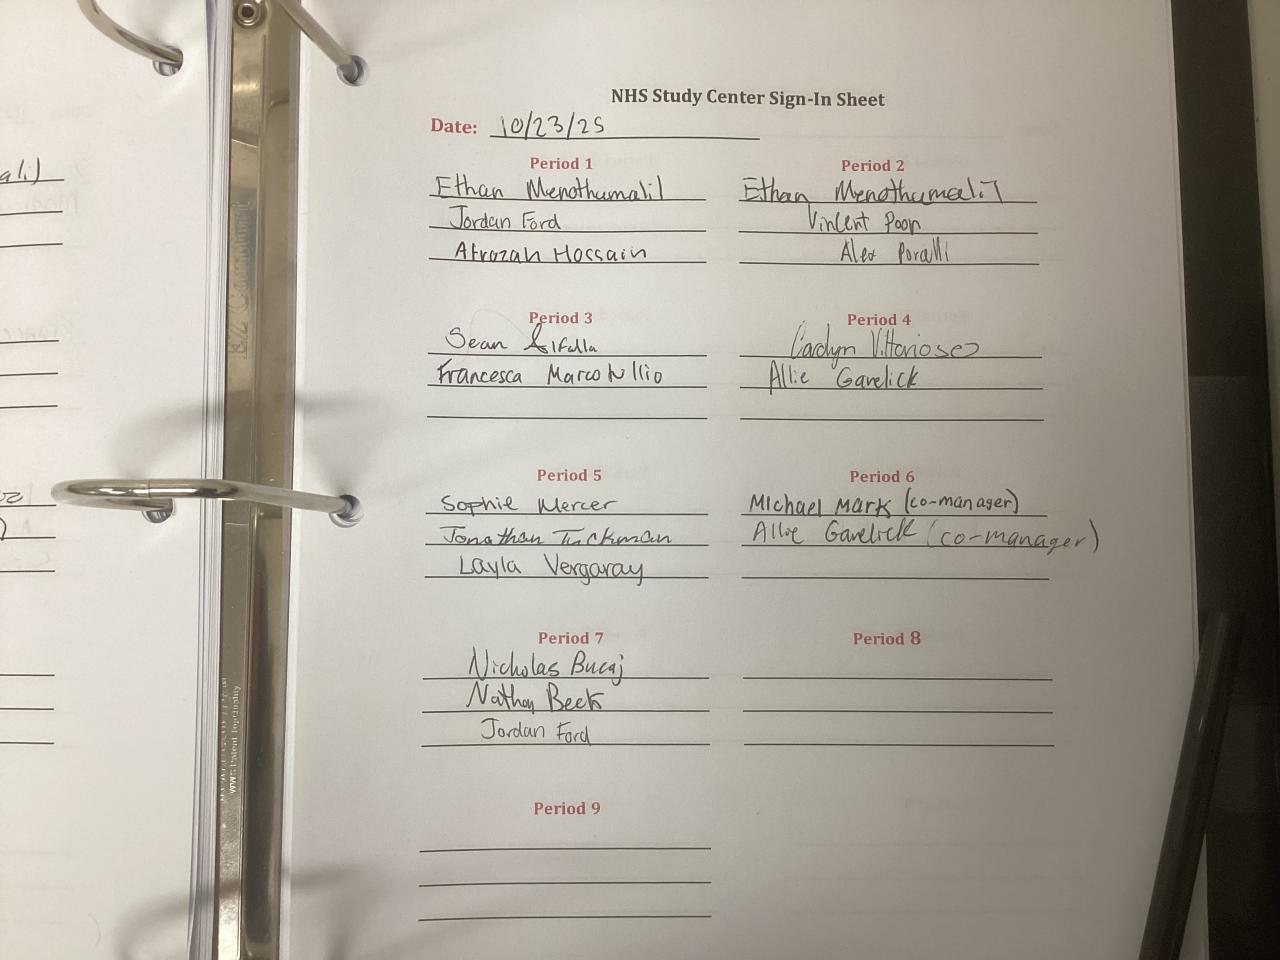 NHS Study Center Sign-In Sheet
Date: 10/23/25
Period 1
Ethan Menothumalil
Jordan Ford
Afrozah Hossain
Period 2
Ethan Menothumalil
Vincent Poon
Alex Poralli
Period 3
Sean Alfalla
Francesca Marcotullio
Period 4
Carolyn Vittoriose
Allie Gavelick
Period 5
Sophie Mercer
Jonathan Tuckman
Layla Vergaray
Period 6
Michael Mark (co-manager)
Allie Gavelick (co-manager)
Period 7
Nicholas Bucaj
Nathan Beck
Jordan Ford
Period 8
Period 9